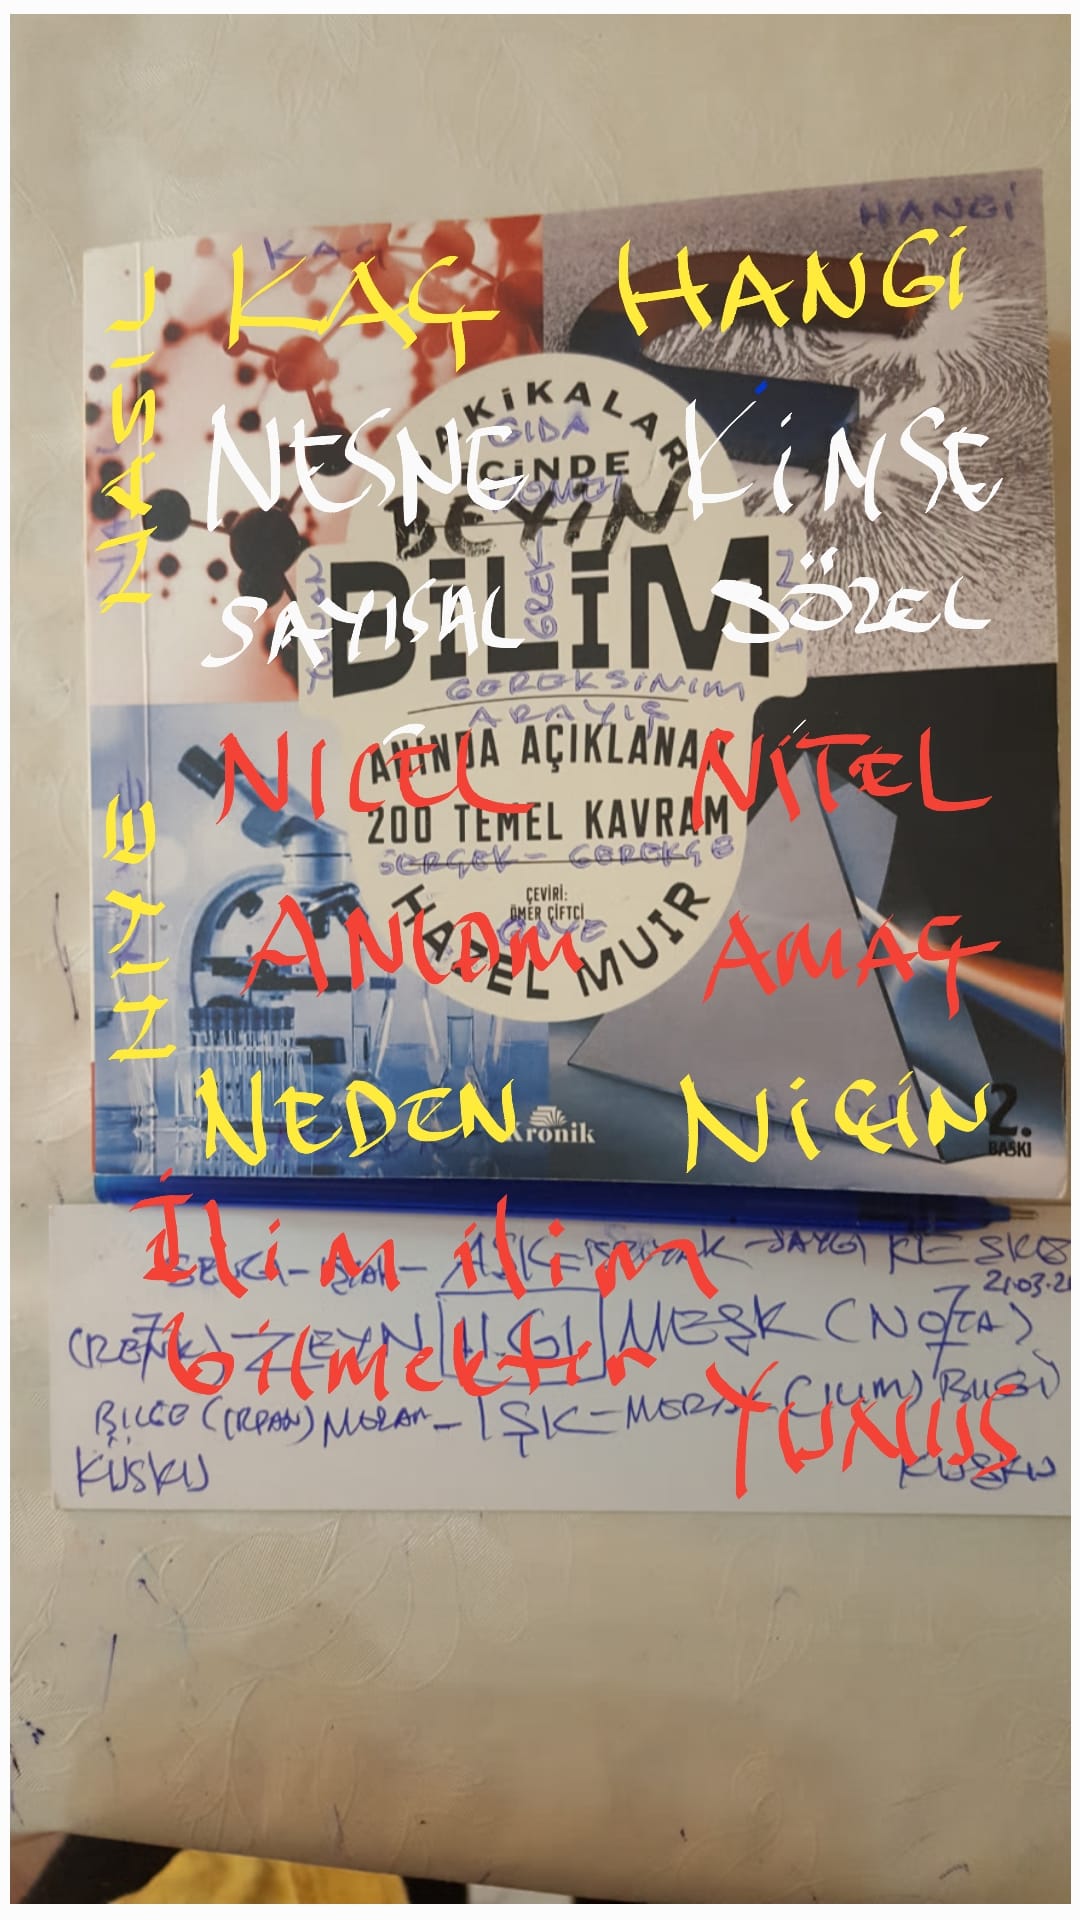 KAÇ HANGİ
KAÇ HANGİ
NASIL
DAKİKALAR
GIDA
İÇİNDE
NESNE KİMSE
BEYİN
BİLİM
SAYISAL SÖZEL
GEREKSİNİM
ARAYIŞ
ANINDA AÇIKLANAN
NICEL NİTEL
200 TEMEL KAVRAM
NİYE
GERÇEK - GEREKÇE
ÇEVİRİ:
ÖMER ÇİFTCİ
ANLAM AMAÇ
HAZEL MUIR
NEDEN NİÇİN
Kronik
2.
BASKI
İlim ilim
bilmektir
YUNUS
AŞK
SAYGI
21.03.2
(RENK) ZEYN İLGİ MEŞK (NOTA)
7 7
BİLGE (İRFAN) IŞK (İLİM) BİLGİ
KÜSKÜ KÜSKÜ